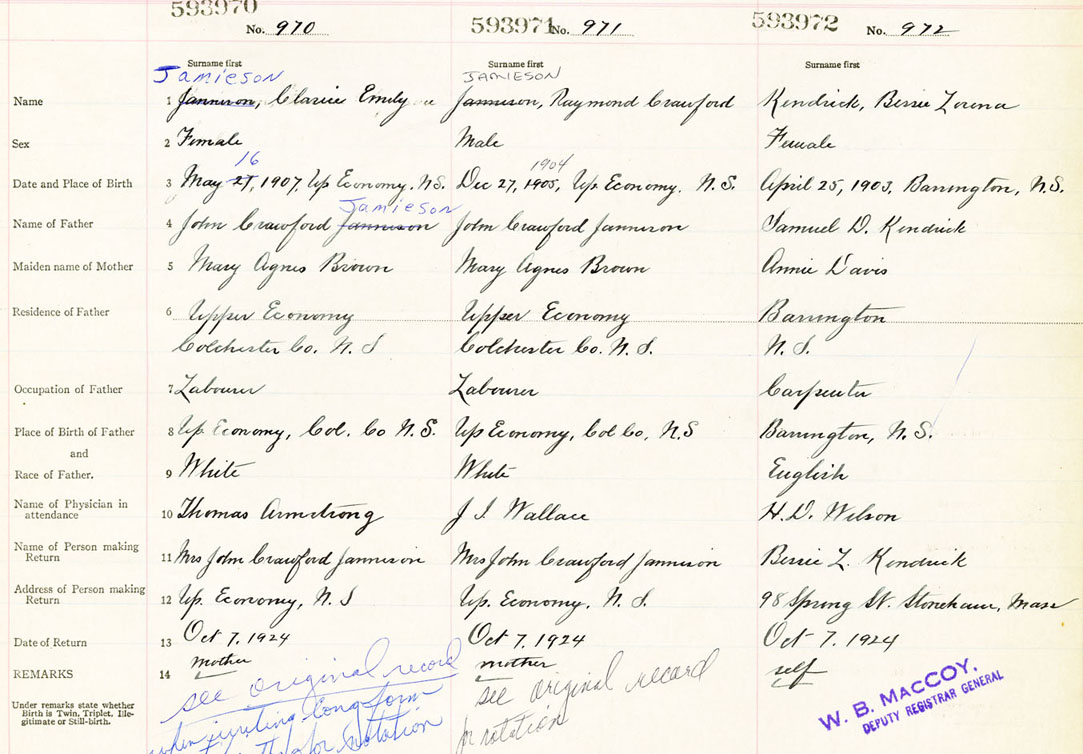 593970 593971 593972
No. 970 No. 971 No. 972
Surname first Surname first Surname first
Jamieson JAMIESON
Name 1 Jannison, Clarice Emily Jannison, Raymond Crawford Kendrick, Bessie Lorena
Sex 2 Female Male Female
16 1904
Date and Place of Birth 3 May 27, 1907, Up Economy, N.S. Dec 27, 1905, Up. Economy. N.S. April 25, 1903, Barrington, N.S.
Jamieson
Name of Father 4 John Crawford Jannison John Crawford Jannison Samuel D. Kendrick
Maiden name of Mother 5 Mary Agnes Brown Mary Agnes Brown Annie Davis
Residence of Father 6 Upper Economy Upper Economy Barrington
Colchester Co. N.S Colchester Co. N.S. N.S.
Occupation of Father 7 Labourer Labourer Carpenter
Place of Birth of Father 8 Up. Economy, Col. Co N.S. Up Economy, Col Co, N.S Barrington, N.S.
and
Race of Father. 9 White White English
Name of Physician in
attendance 10 Thomas Armstrong J I. Wallace H.D. Wilson
Name of Person making
Return 11 Mrs John Crawford Jannison Mrs John Crawford Jannison Bessie L. Kendrick
Address of Person making
Return 12 Up. Economy, N.S Up. Economy, N.S. 98 Spring St. Stoneham, Mass
Date of Return 13 Oct 7, 1924 Oct 7, 1924 Oct 7, 1924
REMARKS 14 mother mother self
see original record see original record
Under remarks state whether
Birth is Twin, Triplet, Ille-
gitimate or Still-birth.
when issuing long form for notation
for notation
W. B. MACCOY,
DEPUTY REGISTRAR GENERAL